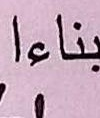 بناءا